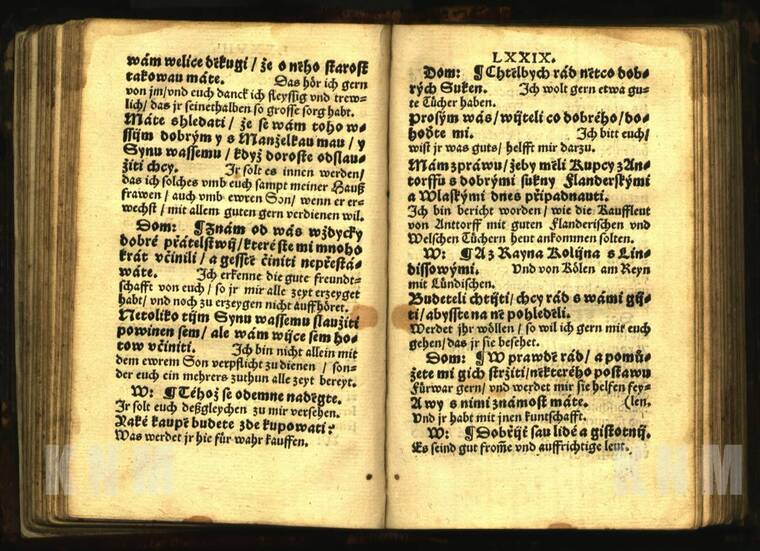 wám welice děkugi / že o něho starost
takowau máte. Das hör ich gern
von jm/ vnd euch danck ich fleyssig vnd trew-
lich/ das jr seinethalben so grosse sorg habt.
Máte shledati / že se wám toho w-
ssým dobrým y s Manželkau mau / y
Synu wassemu / když doroste odslau-
žiti chcy. Jr solt es innen werden/
das ich solches vmb euch sampt meiner Hauß
frawen / auch vmb ewren Son/ wenn er er-
wechst / mit allem guten gern verdienen wil.
Dom: ¶ Znám od wás wždycky
dobré přátelstwij / kteréste mi mnoho
krát včinili / a gesstě činiti nepřestá-
wáte. Ich erkenne die gute freundt-
schafft von euch / so jr mir alle zeyt erzeyget
habt/ vnd noch zu erzeygen nicht auffhöret.
Netoliko tým Synu wassemu slaužiti
powinen sem/ ale wám wýce sem ho-
tow včiniti. Ich bin nicht allein mit
dem ewrem Son verpflicht zu dienen / son-
der euch ein mehrers zuthun alle zeyt bereyt.
W: ¶ Téhož se odemne naděgte.
Jr solt euch deßgleychen zu mir versehen.
Yaké kaupě budete zde kupowati?
Was werdet jr hie für wahr kauffen.
LXXIX.
Dom: ¶ Chtělbych rád nětco dob-
rých Suken. Ich wolt gern etwa gu-
te Tücher haben.
Prosým wás/ wijteli co dobrého/ do-
hoďte mi. Ich bitt euch/
wist jr was guts/ helfft mir darzu.
Mám zpráwu/ žeby měli Kupcy z An-
torffu s dobrými sukny Flanderskými
a Wlaskými dnes připadnauti.
Ich bin bericht worden/ wie die Kauffleut
von Anttorff mit guten Flanderischen vnd
Welschen Tüchern heut ankommen solten.
W: ¶ A z Rayna Kolijna s Lin-
dissowými. Vnd von Kölen am Reyn
mit Lündischen.
Budeteli chtijti/ chcy rád s wámi gij-
ti/ abyste na ně pohleděli.
Werdet jhr wöllen / so wil ich gern mit euch
gehen/ das jr sie besehet.
Dom: ¶ W prawdě rád/ a pomů-
žete mi gich stržiti/ některého postawu
Fürwar gern/ vnd werdet mir sie helfen fey-
A wy s nimi známost máte. (len.
Vnd jr habt mit jnen kuntschafft.
W: ¶ Dobřijť sau lidé a gistotnij.
Es seind gut from̃e vnd auffrichtige leut.
KNM
KNM